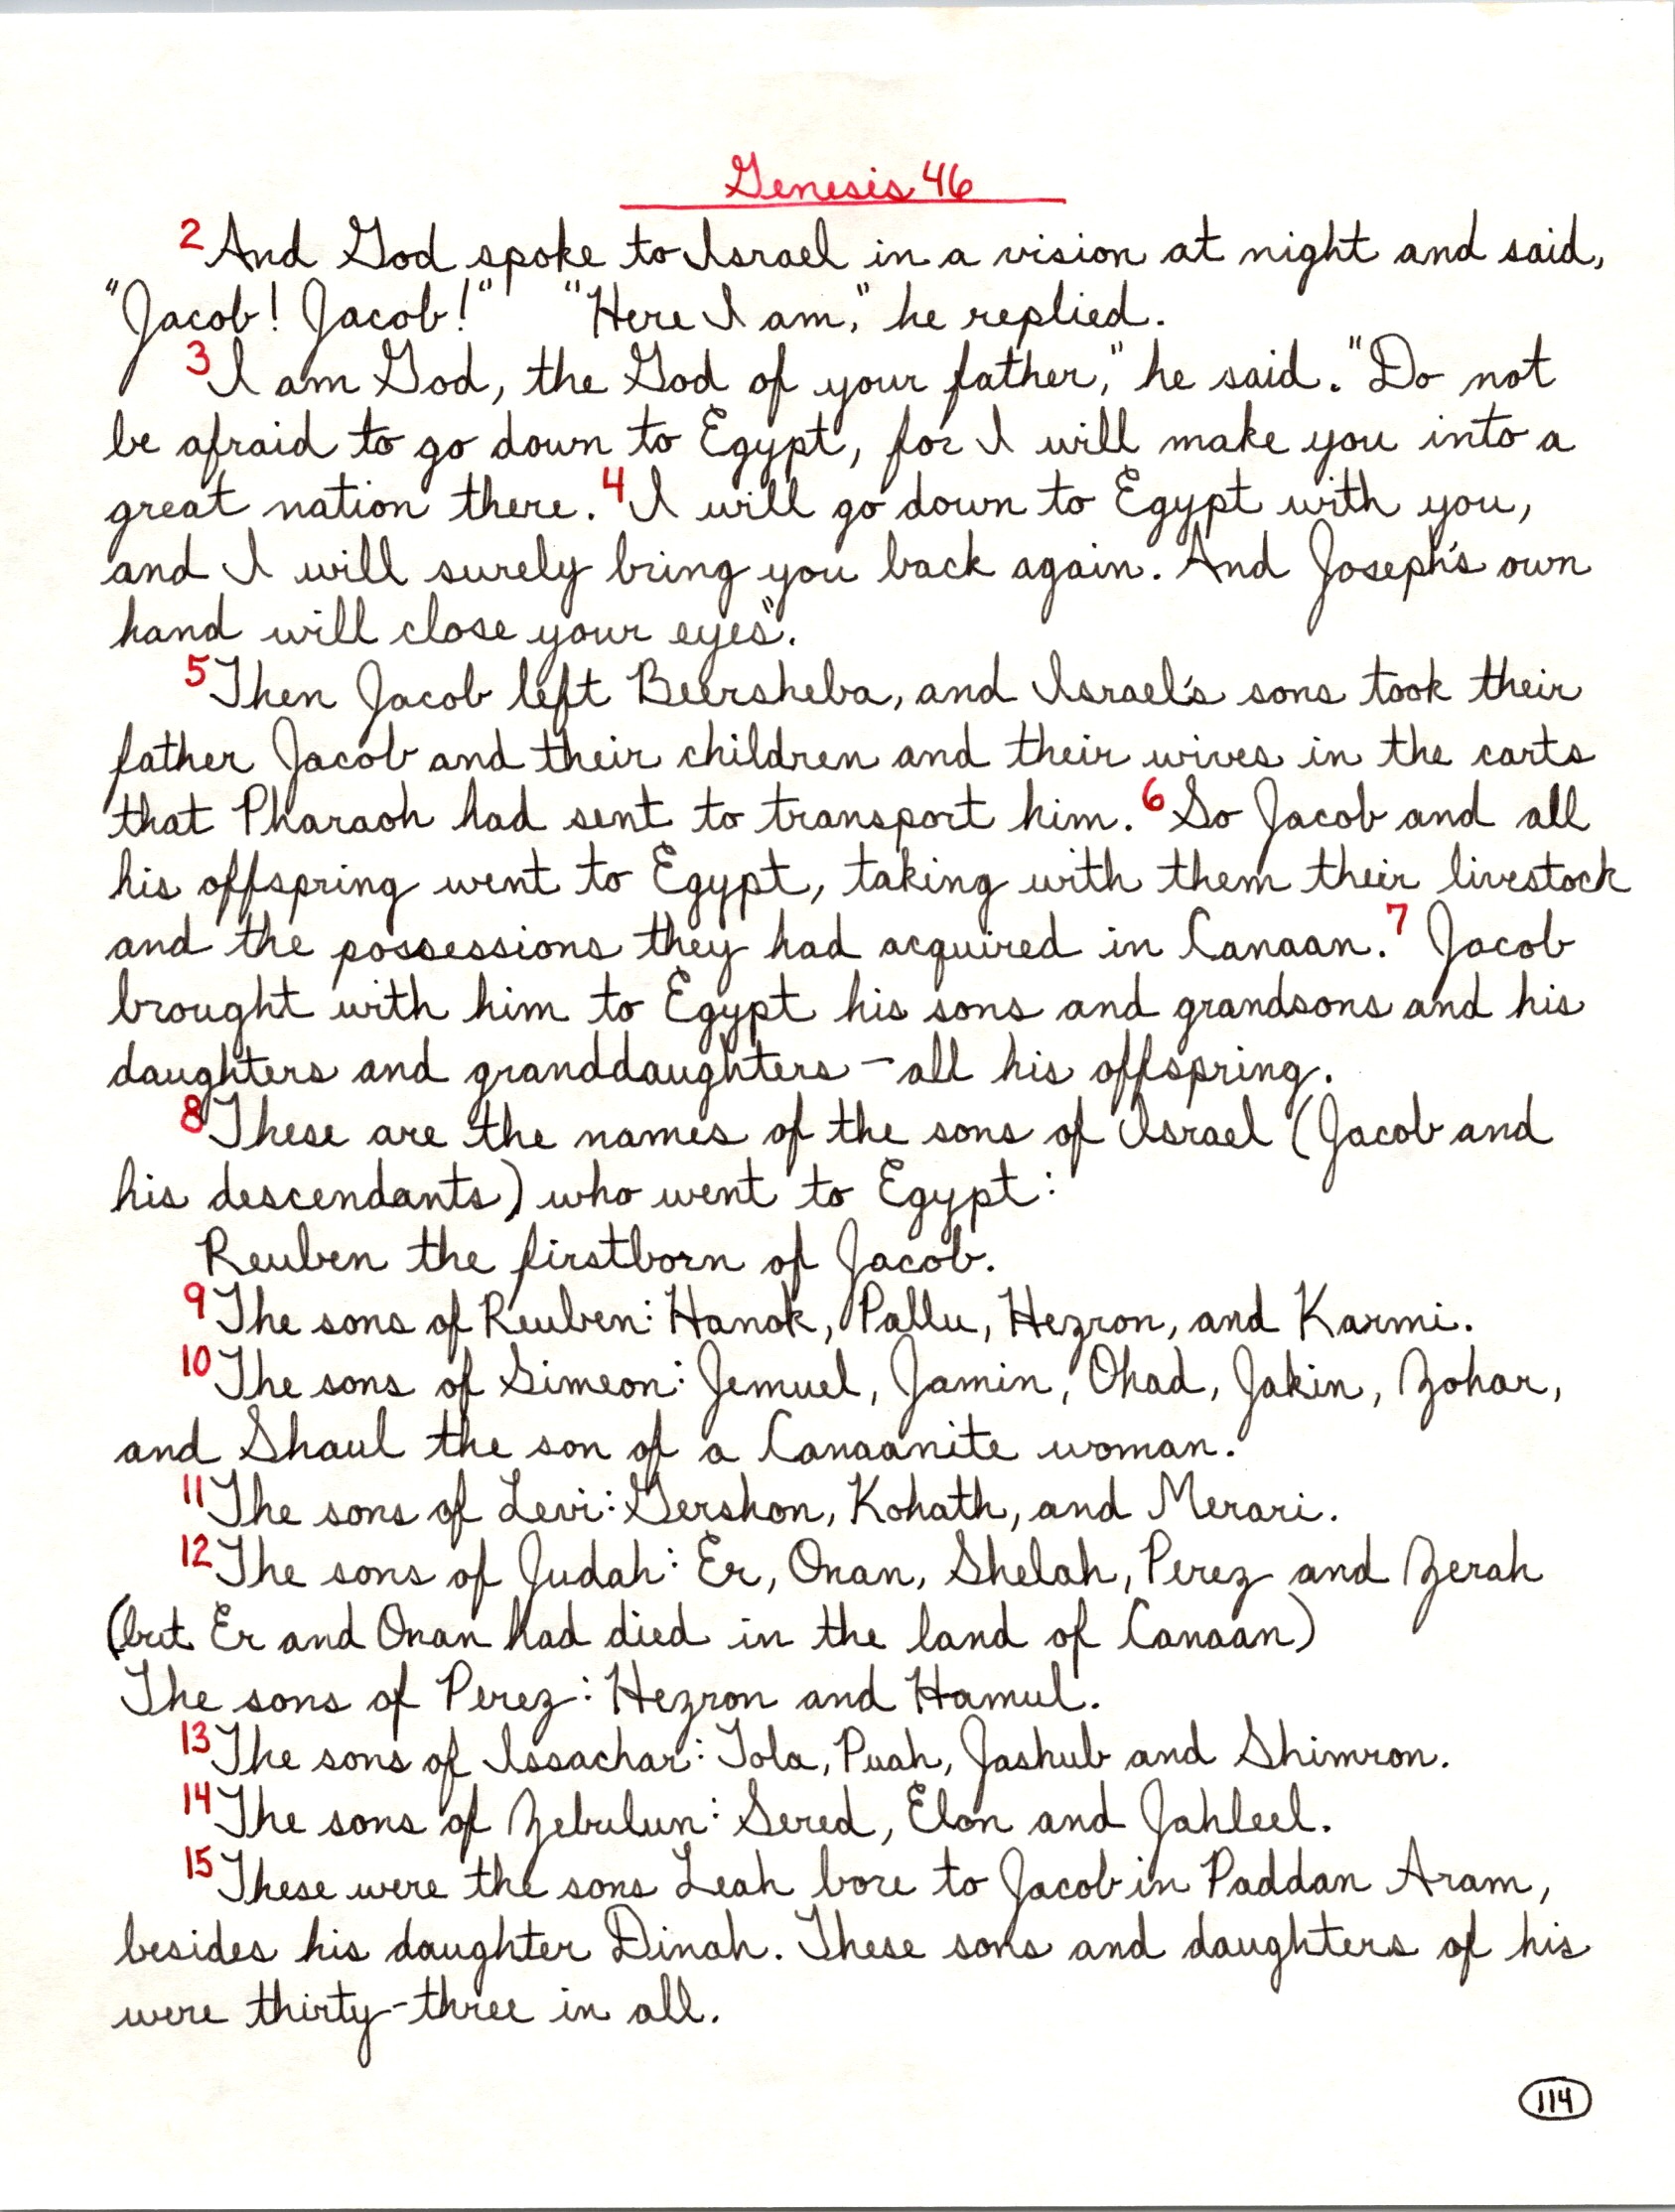 Genesis 46
2 And God spoke to Israel in a vision at night and said,
"Jacob! Jacob!" "Here I am," he replied.
3 I am God, the God of your father," he said. "Do not
be afraid to go down to Egypt, for I will make you into a
great nation there. 4 I will go down to Egypt with you,
and I will surely bring you back again. And Joseph's own
hand will close your eyes".
5 Then Jacob left Beersheba, and Israel's sons took their
father Jacob and their children and their wives in the carts
that Pharaoh had sent to transport him. 6 So Jacob and all
his offspring went to Egypt, taking with them their livestock
and the possessions they had acquired in Canaan. 7 Jacob
brought with him to Egypt his sons and grandsons and his
daughters and granddaughters - all his offspring.
8 These are the names of the sons of Israel (Jacob and
his descendants) who went to Egypt:
Reuben the firstborn of Jacob.
9 The sons of Reuben: Hanok, Pallu, Hezron, and Karmi.
10 The sons of Simeon: Jemuel, Jamin, Ohad, Jakin, Zohar,
and Shaul the son of a Canaanite woman.
11 The sons of Levi: Gershon, Kohath, and Merari.
12 The sons of Judah: Er, Onan, Shelah, Perez and Zerah
(but Er and Onan had died in the land of Canaan)
The sons of Perez: Hezron and Hamul.
13 The sons of Issachar: Tola, Puah, Jashub and Shimron.
14 The sons of Zebulun: Sered, Elon and Jahleel.
15 These were the sons Leah bore to Jacob in Paddan Aram,
besides his daughter Dinah. These sons and daughters of his
were thirty-three in all.
114